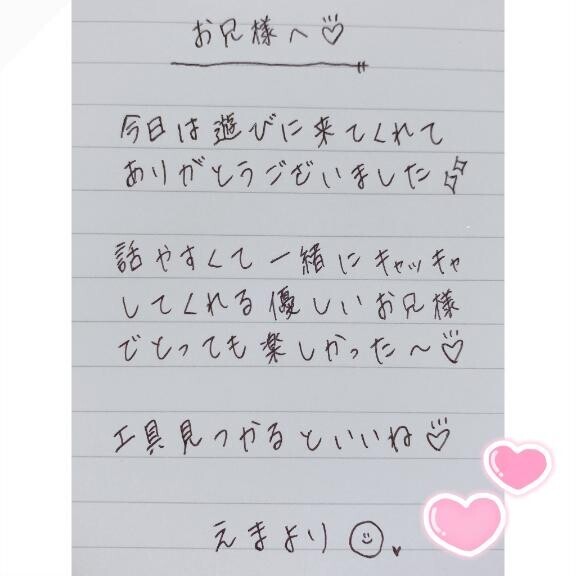 お兄様へ♡
今日は遊びに来てくれて
ありがとうございました
話やすくて一緒にキャッキャ
してくれる優しいお兄様
でとっても楽しかった〜♡
工具見つかるといいね♡
えまより